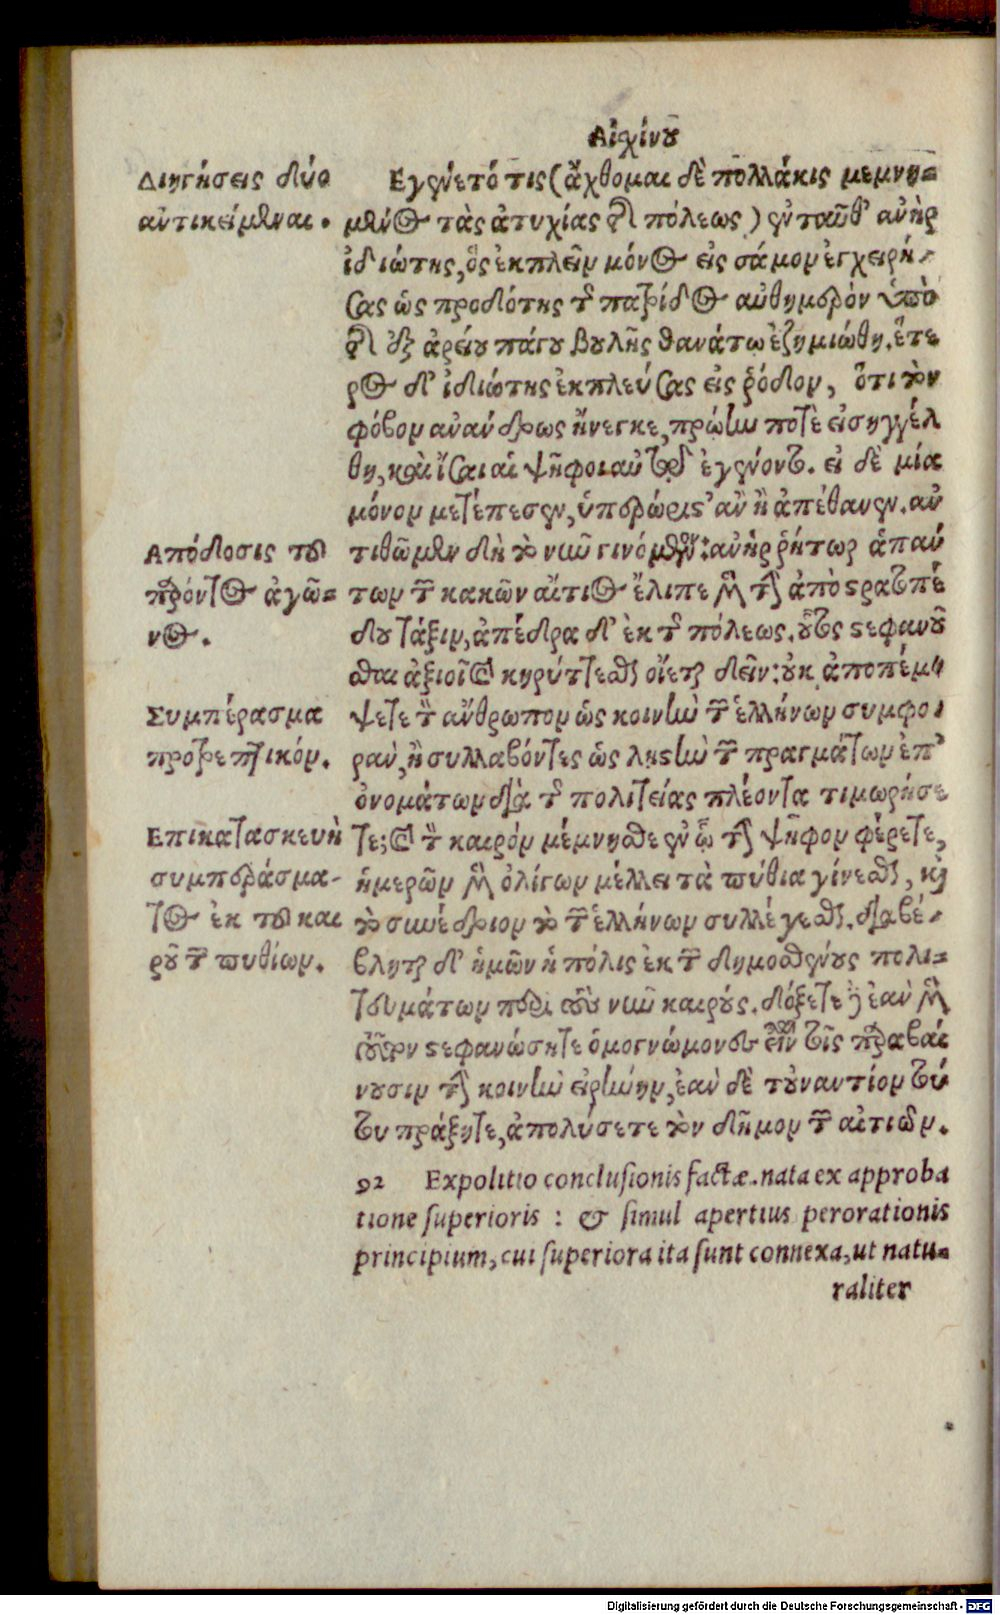 Αἰχίνου
Διηγήσεις δύο
ἀντικείμεναι.
Εγένετό τις (ἄχθομαι δὲ πολλάκις μεμνη=
μένος τὰς ἀτυχίας τῆς πόλεως) ἐνταῦθ' ἀνὴρ
ἰδιώτης, ὃς ἐκπλεῖν μόνος εἰς σάμον ἐγχειρή-
σας ὡς προδότης τῆς πατρίδος αὐθημερὸν ὑπὸ
τῆς ἐξ ἀρείου πάγου βουλῆς θανάτῳ ἐζημιώθη. ἕτε
ρος δ' ἰδιώτης ἐκπλεύσας εἰς ῥόδον, ὅτι τὸν
φόβον ἀνάνδρως ἤνεγκε, πρώην ποτὲ εἰσηγγέλ
θη, καὶ ἴσαι αἱ ψῆφοι αὐτῷ ἐγένοντο. εἰ δὲ μία
μόνον μετέπεσεν, ὑπερώριστ' ἂν ἢ ἀπέθανεν. ἀν
Απόδοσις τοῦ
παρόντος ἀγῶ=
νος.
τιθῶμεν δὴ τὸ νῦν γινόμενον: ἀνὴρ ῥήτωρ ἁπάν
των τῶν κακῶν αἴτιος ἔλιπε μὲν τὴν ἀπὸ στρατοπέ
δου τάξιν, ἀπέδρα δ' ἐκ τῆς πόλεως. οὗτος στεφανοῦ
σθαι ἀξιοῖ καὶ κηρύττεσθαι οἴεται δεῖν: οὐκ ἀποπέμ-
Συμπέρασμα
προτρεπτικόν.
ψετε τὸν ἄνθρωπον ὡς κοινὴν τῶν ἑλλήνων συμφο-
ράν, ἢ συλλαβόντες ὡς λῃστὴν τῶν πραγμάτων ἐπ'
ὀνομάτων διὰ τῆς πολιτείας πλέοντα τιμωρήσε
Επικατασκευὴ
συμπεράσμα-
τος ἐκ τοῦ και
ροῦ τῶν πυθίων.
τε; καὶ τὸν καιρὸν μέμνησθε ἐν ᾧ τὴν ψῆφον φέρετε,
ἡμερῶν μὲν ὀλίγων μέλλει τὰ πύθια γίνεσθαι, καὶ
τὸ συνέδριον τὸ τῶν ἑλλήνων συλλέγεσθαι. διαβέ-
βληται δ' ἡμῶν ἡ πόλις ἐκ τῶν δημοσθένους πολι=
τευμάτων περὶ τοὺς νῦν καιρούς. δόξετε δ' ἐὰν μὲν
τοῦτον στεφανώσητε ὁμογνώμονες εἶναι τοῖς παραβαί
νουσιν τὴν κοινὴν εἰρήνην, ἐὰν δὲ τοὐναντίον τού
του πράξητε, ἀπολύσετε τὸν δῆμον τῶν αἰτιῶν.
92 Expolitio conclusionis factæ. nata ex approba
tione superioris : & simul apertius perorationis
principium, cui superiora ita sunt connexa, ut natu=
raliter
Digitalisierung gefördert durch die Deutsche Forschungsgemeinschaft - DFG